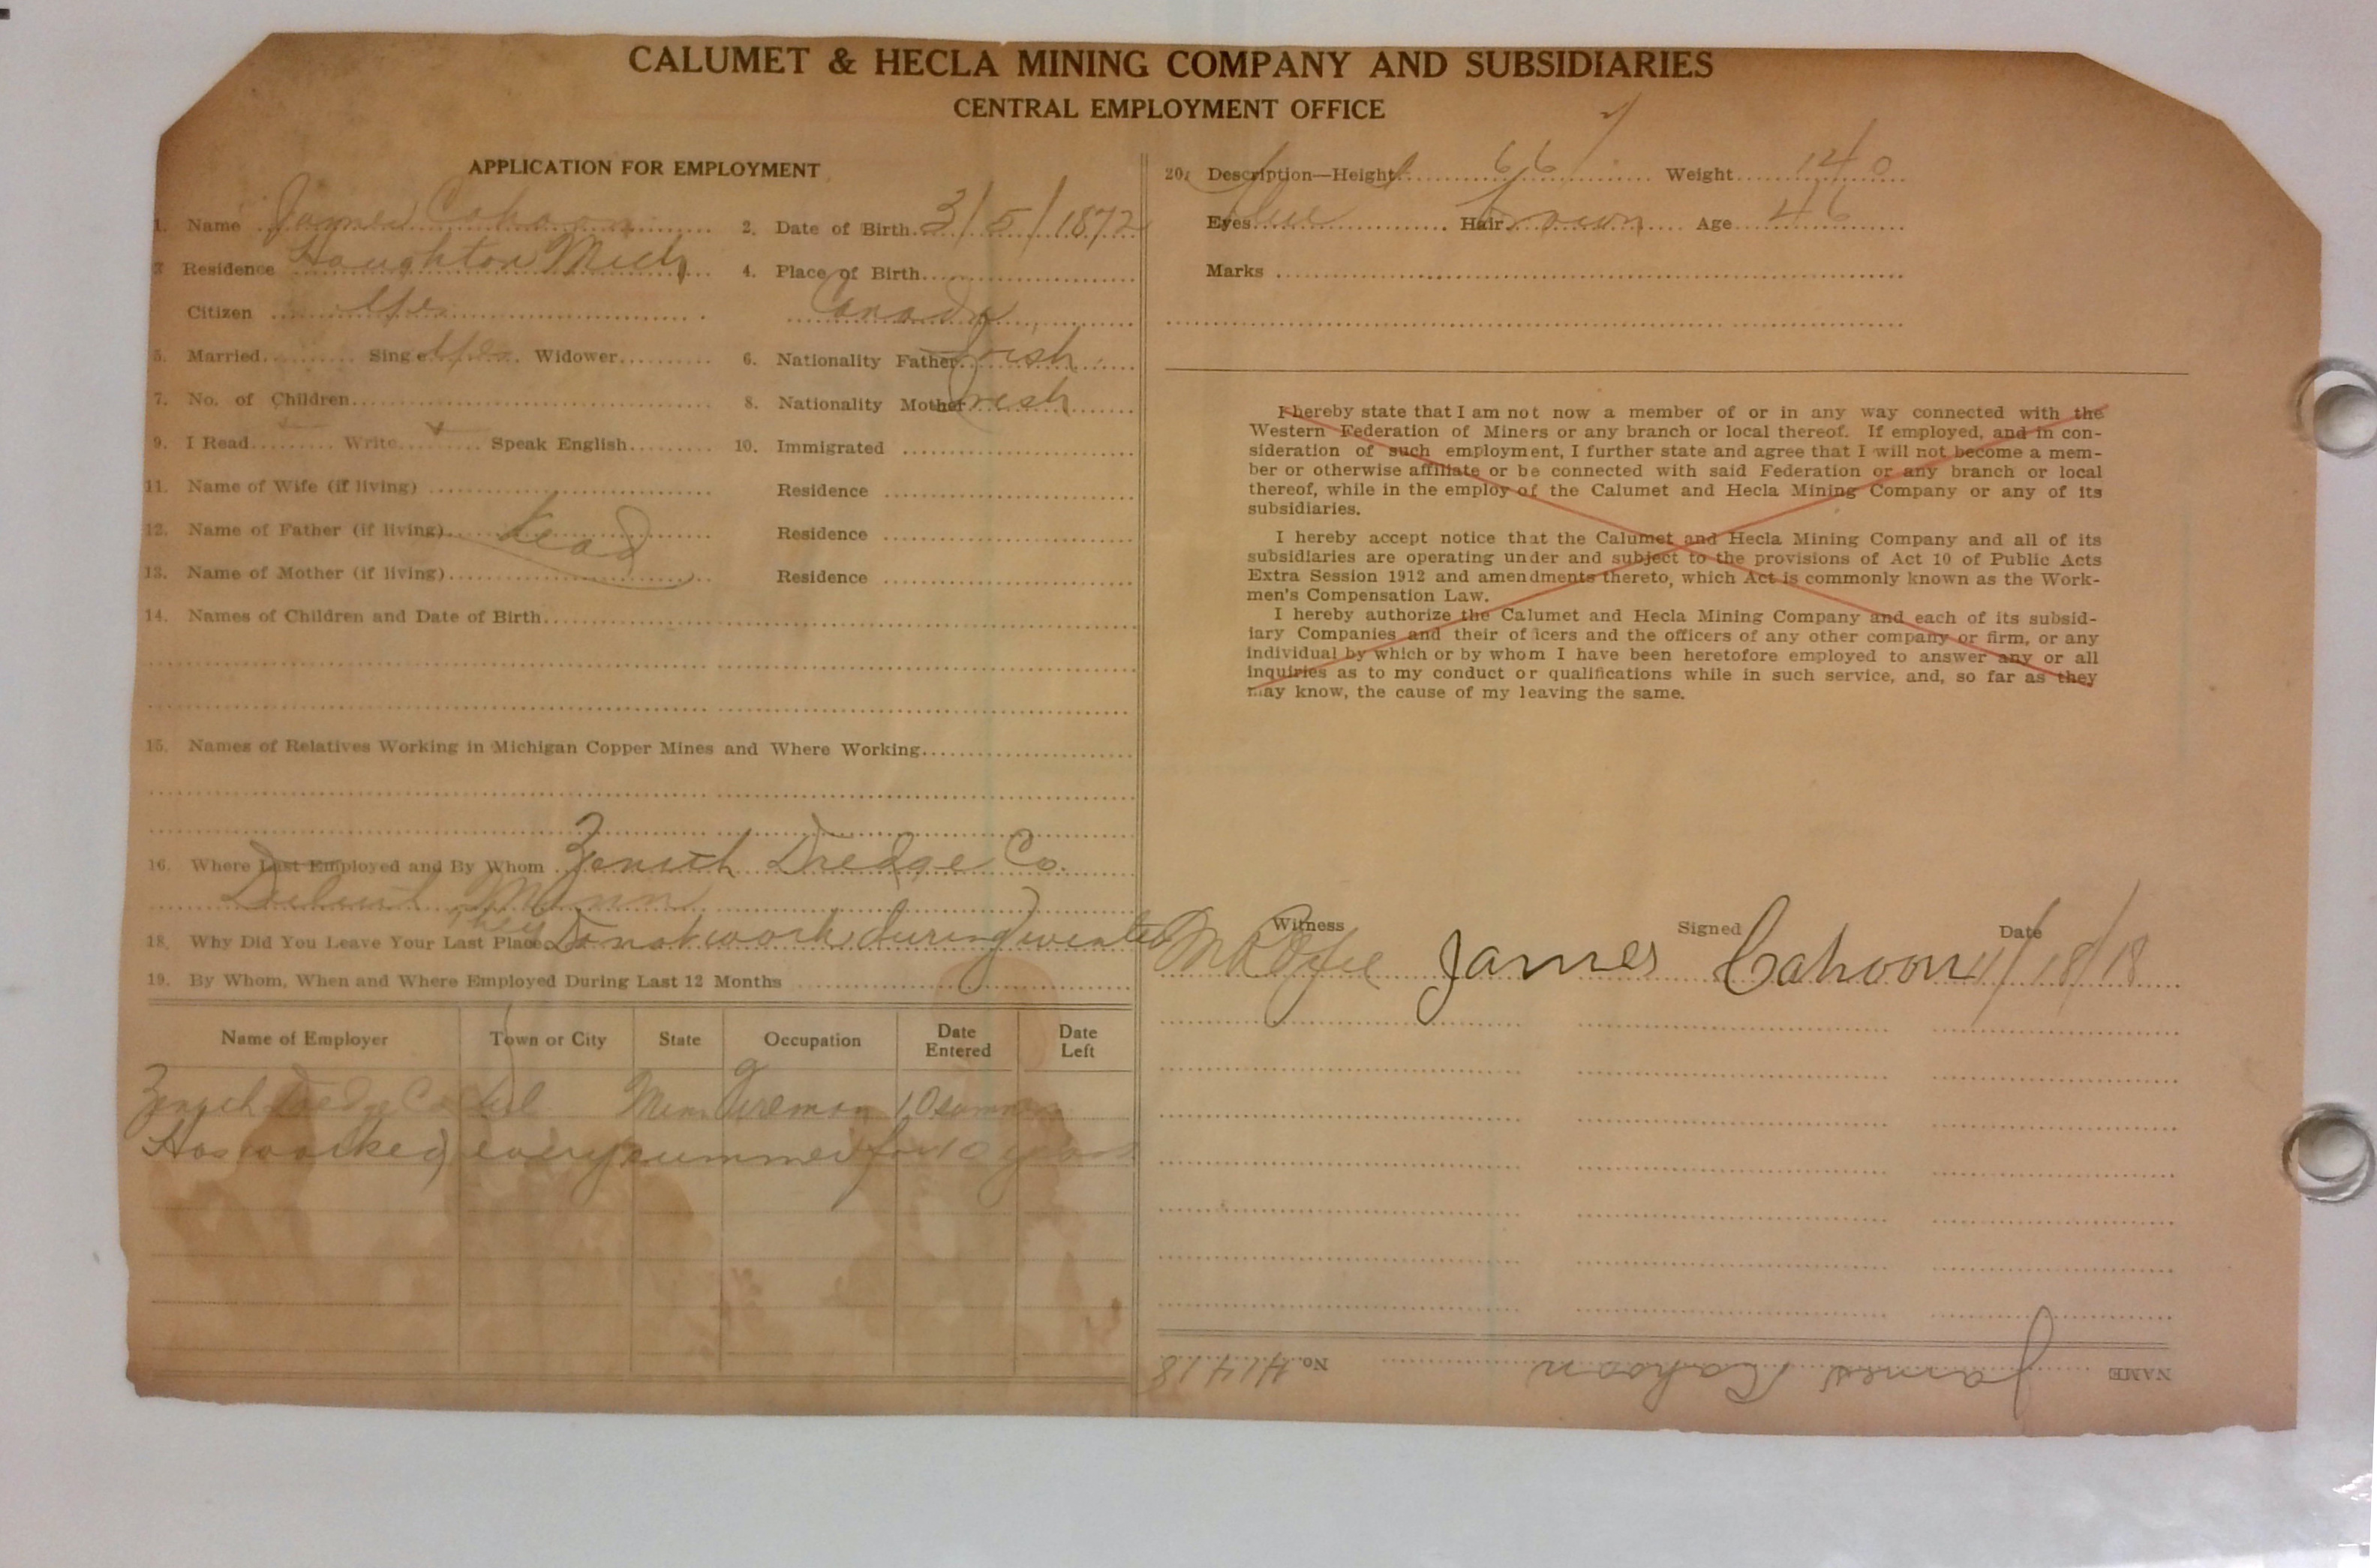 CALUMET & HECLA MINING COMPANY AND SUBSIDIARIES
CENTRAL EMPLOYMENT OFFICE
APPLICATION FOR EMPLOYMENT
1. Name James Cahoon 2. Date of Birth 3/5/1872
3 Residence Houghton Mich 4. Place of Birth
Citizen Yes Canada
5. Married Single Yes Widower 6. Nationality Father Irish
7. No. of Children 8. Nationality Mother Irish
9. I Read Write Speak English 10. Immigrated
11. Name of Wife (if living) Residence
12. Name of Father (if living) Dead Residence
13. Name of Mother (if living) Residence
14. Names of Children and Date of Birth
15. Names of Relatives Working in Michigan Copper Mines and Where Working
16. Where Last Employed and By Whom Zenith Dredge Co.
Duluth Minn
18. Why Did You Leave Your Last Place They Do not work during winter
19. By Whom, When and Where Employed During Last 12 Months
Name of Employer Town or City State Occupation Date Entered Date Left
Zenith Dredge Co Dul Minn Fireman 10 summers
Has worked every summer for 10 years
20. Description—Height 66 Weight 140
Eyes Blue Hair Brown Age 46
Marks
I hereby state that I am not now a member of or in any way connected with the
Western Federation of Miners or any branch or local thereof. If employed, and in con-
sideration of such employment, I further state and agree that I will not become a mem-
ber or otherwise affiliate or be connected with said Federation or any branch or local
thereof, while in the employ of the Calumet and Hecla Mining Company or any of its
subsidiaries.
I hereby accept notice that the Calumet and Hecla Mining Company and all of its
subsidiaries are operating under and subject to the provisions of Act 10 of Public Acts
Extra Session 1912 and amendments thereto, which Act is commonly known as the Work-
men's Compensation Law.
I hereby authorize the Calumet and Hecla Mining Company and each of its subsid-
iary Companies and their officers and the officers of any other company or firm, or any
individual by which or by whom I have been heretofore employed to answer any or all
inquiries as to my conduct or qualifications while in such service, and, so far as they
may know, the cause of my leaving the same.
Witness Signed Date
James Cahoon 11/18/18
NAME James Cahoon No. 41418